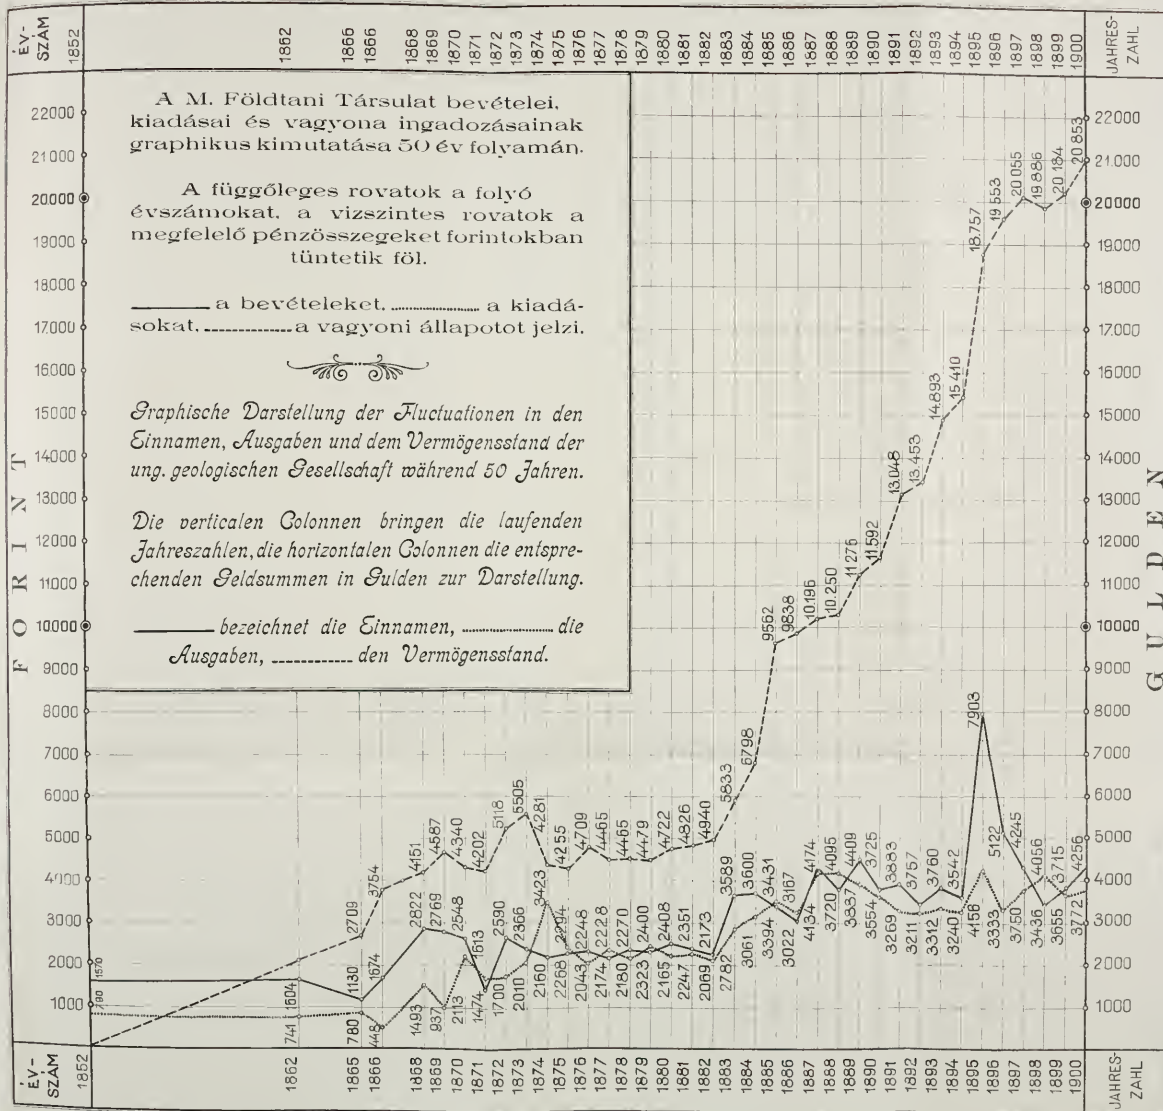 ÉV-
SZÁM
1852 1862 1866 1866 1868 1869 1870 1871 1872 1873 1874 1875 1876 1877 1878 1879 1880 1881 1882 1883 1884 1885 1886 1887 1888 1889 1890 1891 1892 1893 1894 1895 1896 1897 1898 1899 1900
JAHRES-
ZAHL
A M. Földtani Társulat bevételei,
kiadásai és vagyona ingadozásainak
graphikus kimutatása 50 év folyamán.
A függőleges rovatok a folyó
évszámokat, a vizszintes rovatok a
megfelelő pénzösszegeket forintokban
tüntetik föl.
a bevételeket, a kiadá-
sokat, a vagyoni állapotot jelzi.
Graphische Darstellung der Fluctuationen in den
Einnamen, Ausgaben und dem Vermögensstand der
ung. geologischen Gesellschaft während 50 Jahren.
Die verticalen Colonnen bringen die laufenden
Jahreszahlen, die horizontalen Colonnen die entspre-
chenden Geldsummen in Gulden zur Darstellung.
bezeichnet die Einnamen, die
Ausgaben, den Vermögensstand.
FORINT
22000
21000
20000
19000
18000
17000
16000
15000
14000
13000
12000
11000
10000
9000
8000
7000
6000
5000
4000
3000
2000
1000
GULDEN
22000
21000
20000
19000
18000
17000
16000
15000
14000
13000
12000
11000
10000
9000
8000
7000
6000
5000
4000
3000
2000
1000
2709 3754 4151 4587 4340 4202 5118 5505 4281 4255 4709 4465 4465 4479 4722 4826 4940 5833 6798 9562 9838 10.196 10.250 11275 11.592 13.048 13.453 14.893 15410 18.757 19553 20055 19886 20184 20853
1570 1604 1130 1674 2822 2769 2548 1613 2590 2366 3423 2294 2248 2228 2270 2400 2408 2351 2173 3589 3600 3431 3167 4174 4095 4409 3725 3883 3757 3760 3542 7903 5122 4245 4056 3715 4256
790 741 780 448 1493 937 2113 1474 1700 2010 2160 2268 2043 2174 2180 2323 2165 2247 2069 2782 3061 3394 3022 4134 3720 3887 3554 3269 3211 3312 3240 4156 3333 3750 3436 3655 3772
ÉV-
SZÁM
1852 1862 1865 1866 1868 1869 1870 1871 1872 1873 1874 1875 1876 1877 1878 1879 1880 1881 1882 1883 1884 1885 1886 1887 1888 1889 1890 1891 1892 1893 1894 1895 1896 1897 1898 1899 1900
JAHRES-
ZAHL